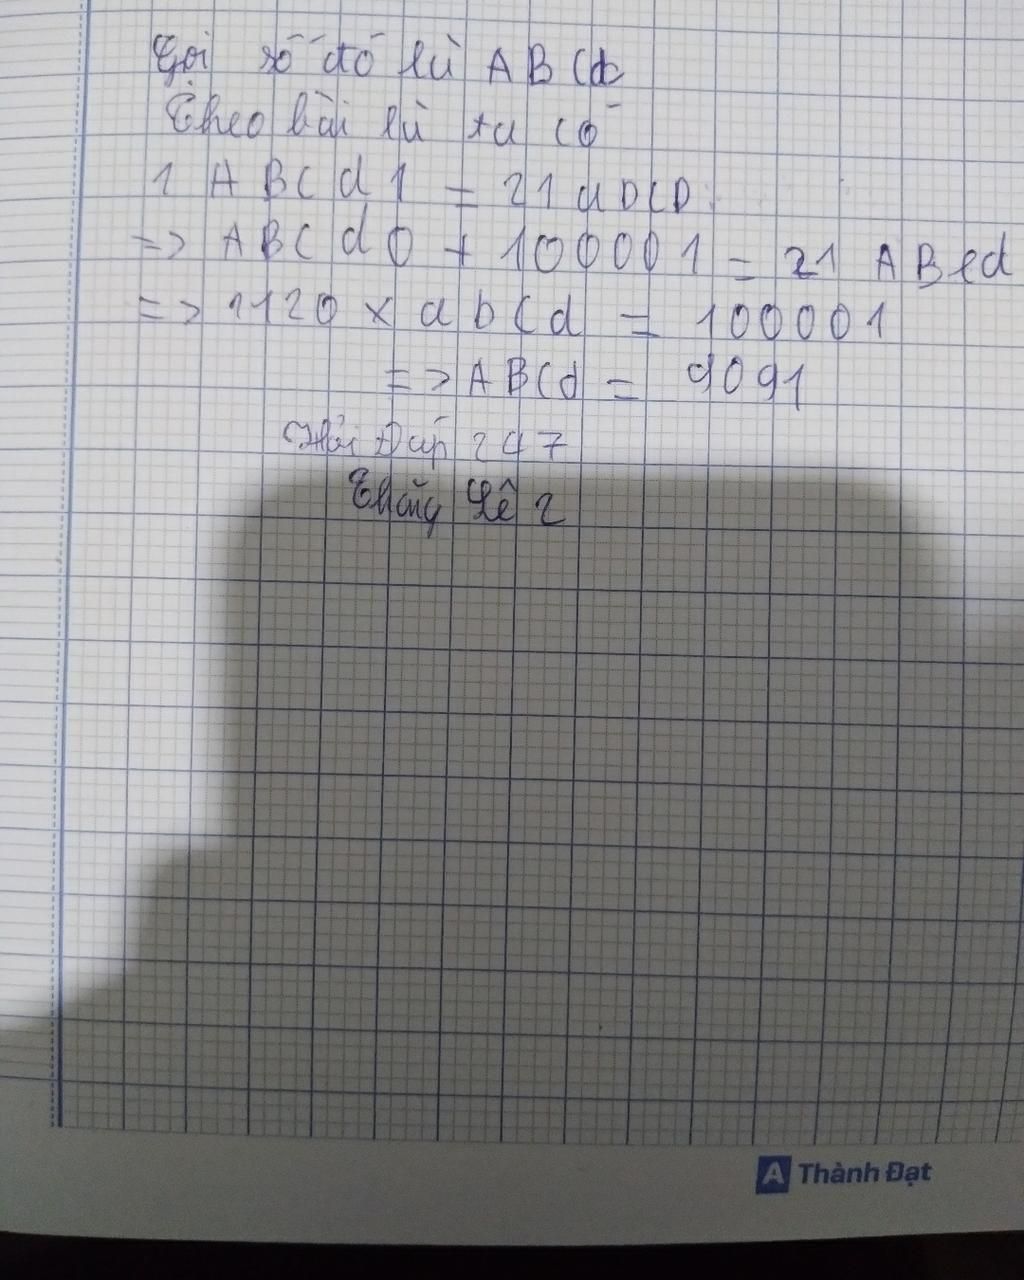 Gọi số đó là ABCd
Theo bài là ta có
1 ABCd1 = 21 abcD
=> ABCd0 + 100001 = 21 ABCd
=> 1120 x abcd = 100001
=> ABCd = 9091
Hỏi Đáp 247
Thắng Lê 2
A Thành Đạt